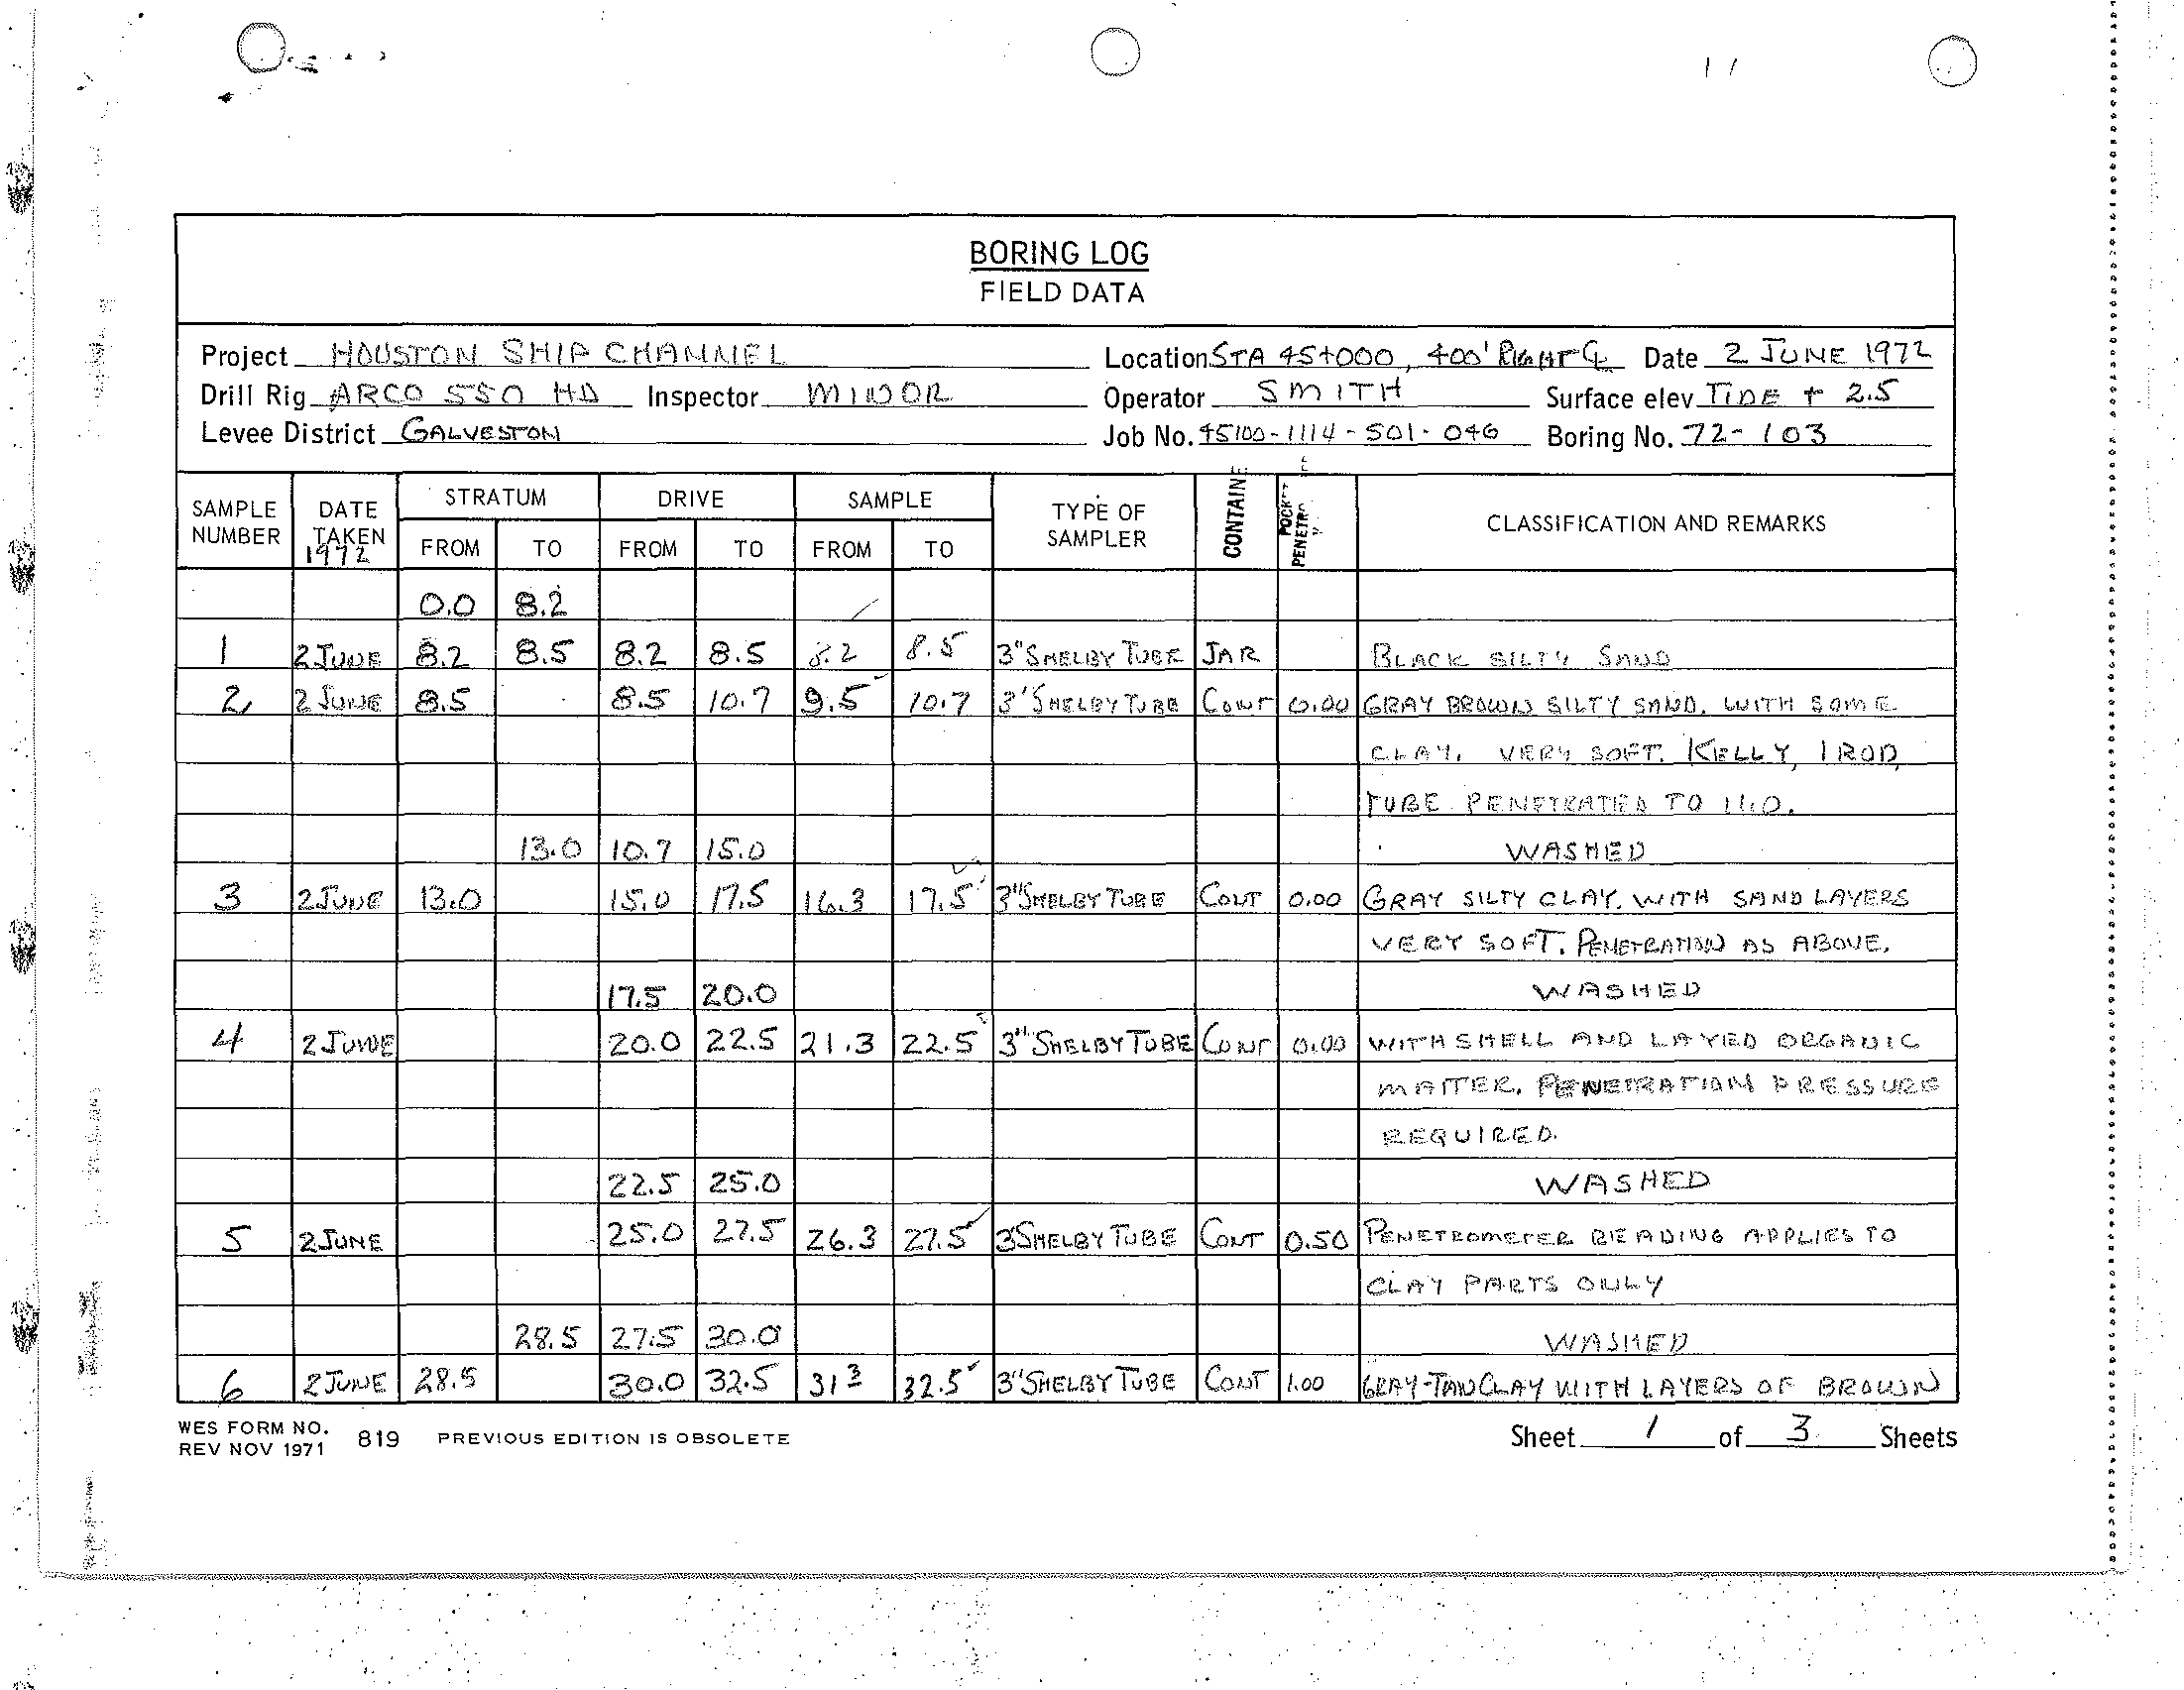 BORING LOG
FIELD DATA
Project HOUSTON SHIP CHANNEL Location STA 45+000, 400' RIGHT ℄ Date 2 JUNE 1972
Drill Rig ARCO 550 HD Inspector MINOR Operator SMITH Surface elev TIDE + 2.5
Levee District GALVESTON Job No. 45100-1114-501-046 Boring No. 72-103
SAMPLE NUMBER DATE TAKEN 1972 STRATUM FROM TO DRIVE FROM TO SAMPLE FROM TO TYPE OF SAMPLER CONTAINE POCKET PENETRO CLASSIFICATION AND REMARKS
0.0 8.2
1 2 JUNE 8.2 8.5 8.2 8.5 8.2 8.5 3" SHELBY TUBE JAR BLACK SILTY SAND
2 2 JUNE 8.5 8.5 10.7 9.5 10.7 3' SHELBY TUBE CONT 0.00 GRAY BROWN SILTY SAND. WITH SOME
CLAY. VERY SOFT. KELLY, 1 ROD,
TUBE PENETRATED TO 11.0.
13.0 10.7 15.0 WASHED
3 2 JUNE 13.0 15.0 17.5 16.3 17.5 3" SHELBY TUBE CONT 0.00 GRAY SILTY CLAY. WITH SAND LAYERS
VERY SOFT. PENETRATION AS ABOVE.
17.5 20.0 WASHED
4 2 JUNE 20.0 22.5 21.3 22.5 3" SHELBY TUBE CONT 0.00 WITH SHELL AND LAYED ORGANIC
MATTER. PENETRATION PRESSURE
REQUIRED.
22.5 25.0 WASHED
5 2 JUNE 25.0 27.5 26.3 27.5 3 SHELBY TUBE CONT 0.50 PENETROMETER READING APPLIES TO
CLAY PARTS ONLY
28.5 27.5 30.0 WASHED
6 2 JUNE 28.5 30.0 32.5 31 3 32.5 3" SHELBY TUBE CONT 1.00 GRAY-TAN CLAY WITH LAYERS OF BROWN
WES FORM NO. 819 PREVIOUS EDITION IS OBSOLETE Sheet 1 of 3 Sheets
REV NOV 1971